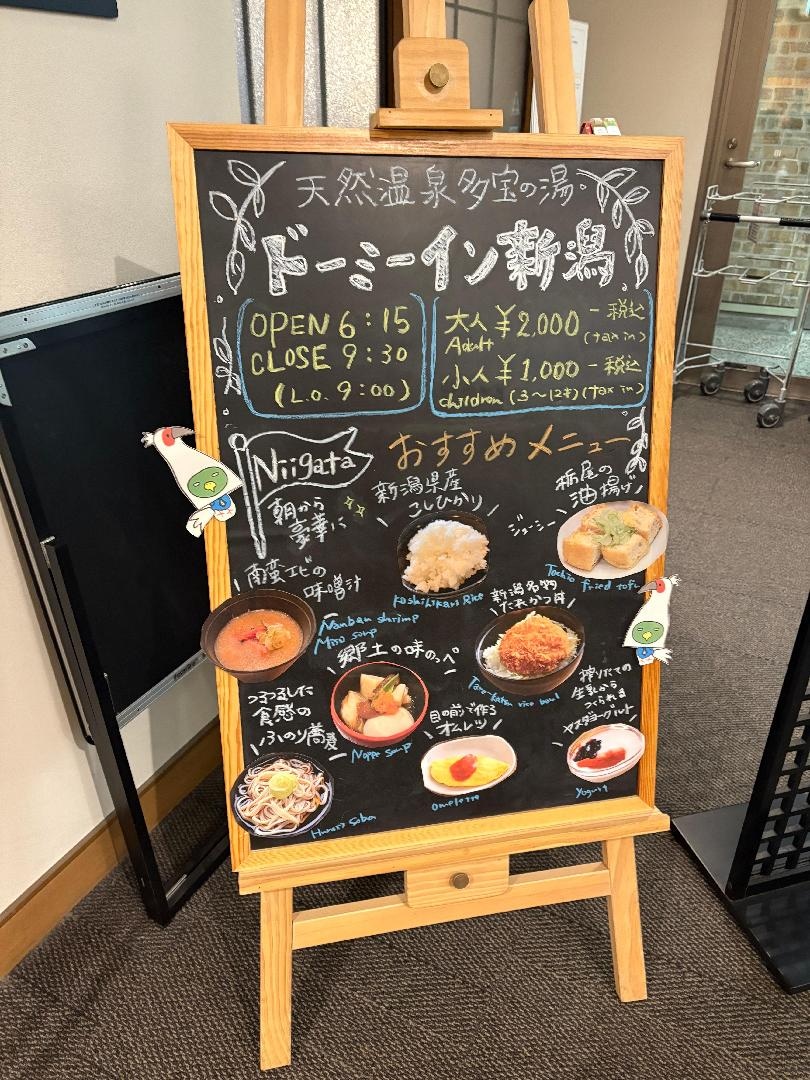 天然温泉多宝の湯。
ドーミーイン新潟
OPEN 6:15
CLOSE 9:30
(L.O. 9:00)
大人 ¥2,000 -税込
Adult (tax in)
小人 ¥1,000 -税込
children (3~12才) (tax in)
Niigata
おすすめメニュー
朝から
豪華に
新潟県産
こしひかり
Koshihikari Rice
栃尾の
油揚げ
ジューシー
Tochio fried tofu
南蛮エビの
味噌汁
Nanban shrimp
Miso soup
新潟名物
たれかつ丼
Tare-katsu rice bowl
郷土の味のっぺ
Noppe soup
つるつるした
食感の
ふのり蕎麦
目の前で作る
オムレツ
omelette
搾りたての
生乳から
つくられる
ヤスダヨーグルト
Yogurt
Soba